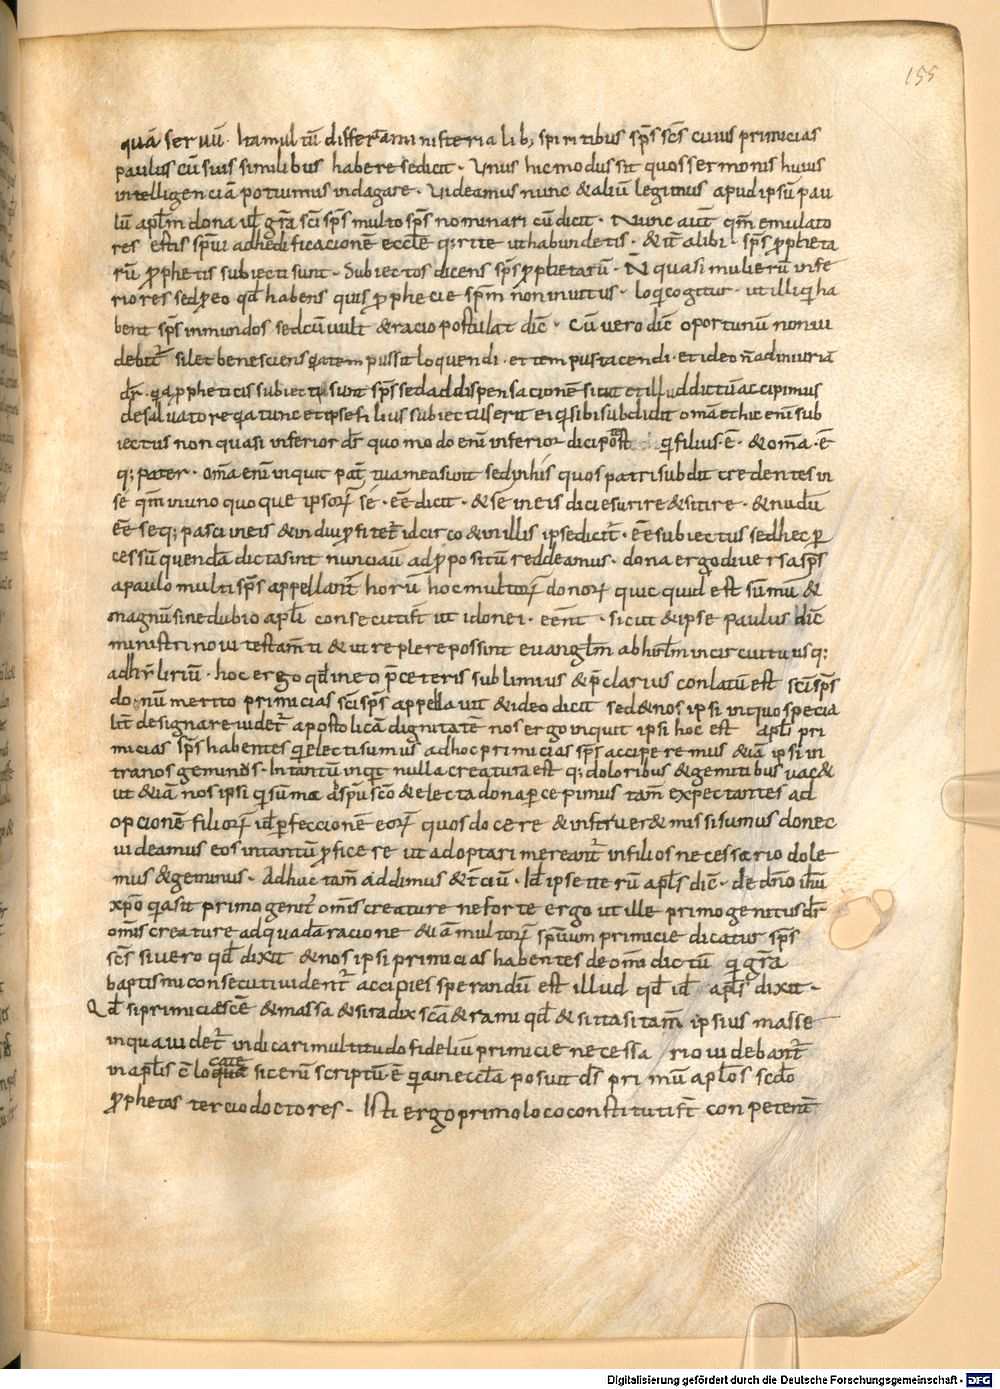 155
quā seruū · Ita multū differt aministeria lib; spiritibus sp̄s sc̄s cuius primicias
paulus cū suis similibus habere se dicit · Unus hic modus sit quo sermonis huius
intelligenciā potuimus indagare · Uideamus nunc & aliū legimus apud ipsū pau
lū apl̄m dona ul̄ gr̄a sc̄i sp̄s multo sp̄s nominari cū dicit · Nunc aut̄ qm̄ emulato
res estis sp̄ui adhedificacionē eccl̄e q;rite ut habundetis · & it̄ alibi · sp̄s p̄pheta
rū p̄phetis subiecti sunt · Subiectos dicens sp̄s p̄phetarū · N̄ quasi mulierū infe
riores sed p̄ eo qd̄ habens quis p̄phecie sp̄m non inuitus · loqui cogitur · ut illi qi ha
bent sp̄s inmundos sed cū uult & racio postulat dic̄ · Cū uero dic̄ oportunū non ui
debit̄ silet bene sciens tempus sit loquendi · et tempus tacendi · et ideo n̄ ad iniuriā
dr̄ · qa p̄pheticis subiecti sunt sp̄s sed ad dispensacionē sicut et illud dictū accipimus
de saluatore qa tunc et ipse filius subiectus erit ei qi sibi subdidit om̄a et hic eni sub
iectus non quasi inferior dr̄ quomodo eni inferior dici potest qi filius · ē · & om̄a · ē
q; pater · om̄a eni inquit pat̄ tua mea sunt sed in his quos patri subdit credentes in
sē qm̄ in uno quoque ipsoꝝ sē · ēē dicit · & se in eis dici esurire & sitire · & nudū
ēē seq; pasci in eis & indui p̄fitet̄ idcirco & in illis ipse dicit̄ · ēē subiectus sed hec p̄
cessū quendā dicta sint nunc iaū ad p̄positū reddeamus · dona ergo diuersa sp̄s
a paulo multi sp̄s appellant̄ horū hoc multoꝝ donoꝝ quicquid est sūmū &
magnū sine dubio apl̄i consecuti st̄ ut idonei · eēnt · sicut & ipse paulus dic̄
ministri noui testam̄ti & ut replere possint euangl̄m ab hirl̄m in circuitu usq;
ad hirliriū · hoc ergo qd̄ in eo p̄ ceteris sublimius & p̄clarius conlatū est sc̄i sp̄s
donū merito primicias sc̄i sp̄s appellauit & ideo dicit sed & nos ipsi in quo specia
lit̄ designare uidet̄ apostolicā dignitatē nos ergo inquit ipsi hoc est apl̄i pri
micias sp̄s habentes qi electi sumus ad hoc primicias sp̄s accipere mus & iā ipsi in
tra nos gemimus · In tantū inqt̄ nulla creatura est q; doloribus & gemitibus uac&
ut & iā nos ipsi qi summa d̄ sp̄u sc̄o & electa dona p̄cepimus tam̄ expectantes ad
opcionē filioꝝ id p̄feccionē eoꝝ quos docere & instruer& missi sumus donec
uideamus eos in tantū p̄ficese ut adoptari mereant̄ in filios necessario dole
mus & gemimus · Adhuc tam̄ addimus & t̄ciū · Id ipse iterū apl̄s dic̄ · de dn̄o ihū
xp̄o qa sit primogenit̄ om̄is creature ne forte ergo ut ille primogenitus dr̄
om̄is creature ad quadā racione & iā multoꝝ sp̄uum primicie dicatur sp̄s
sc̄s si uero qd̄ dixit & nos ipsi primicias habentes de om̄a dictū qi gr̄a
baptismi consecuti uident̄ accipies sperandū est illud qd̄ id̄ apl̄s dixit ·
Qd̄ si primicie sc̄ē & massa & si radix sc̄a & rami qd̄ & si ita sit tam̄ ipsius masse
in qua uidet̄ indicari multitudo fideliū primicie necessa rio uidebant̄
in apl̄is ē locate sic enī scriptū · ē qa in eccl̄a posuit ds̄ primū apl̄os sc̄do
p̄phetas tercio doctores · Isti ergo primo loco constituti st̄ conpetent̄
Digitalisierung gefördert durch die Deutsche Forschungsgemeinschaft · DFG